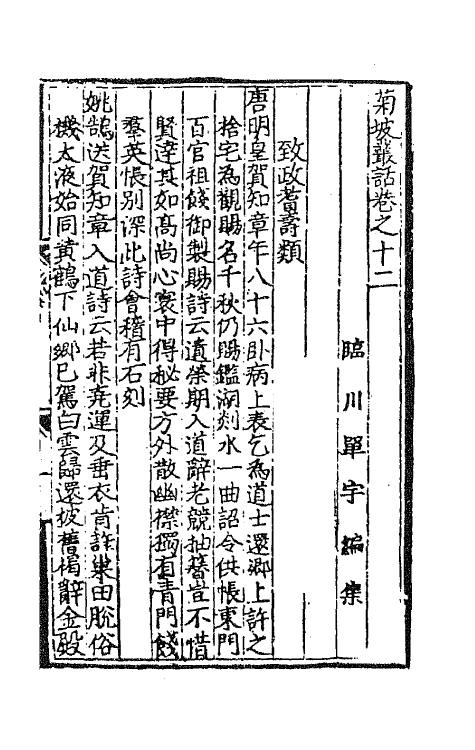 菊坡叢話卷之十二
臨川單宇編集
致政耆壽類
唐明皇賀知章年八十六卧病上表乞為道士還鄉上許之
捨宅為觀賜名千秋仍賜鑑湖剡水一曲詔令供帳東門
百官祖餞御製賜詩云遺榮期入道辭老競抽簪豈不惜
賢達其如高尚心寰中得秘要方外散幽襟獨有青門餞
羣英悵别深此詩會稽有石刻
姚鵠送賀知章入道詩云若非堯運及垂衣肯許巢由脫俗
機太液始同黄鶴下仙鄉已駕白雲歸還披舊褐辭金殿